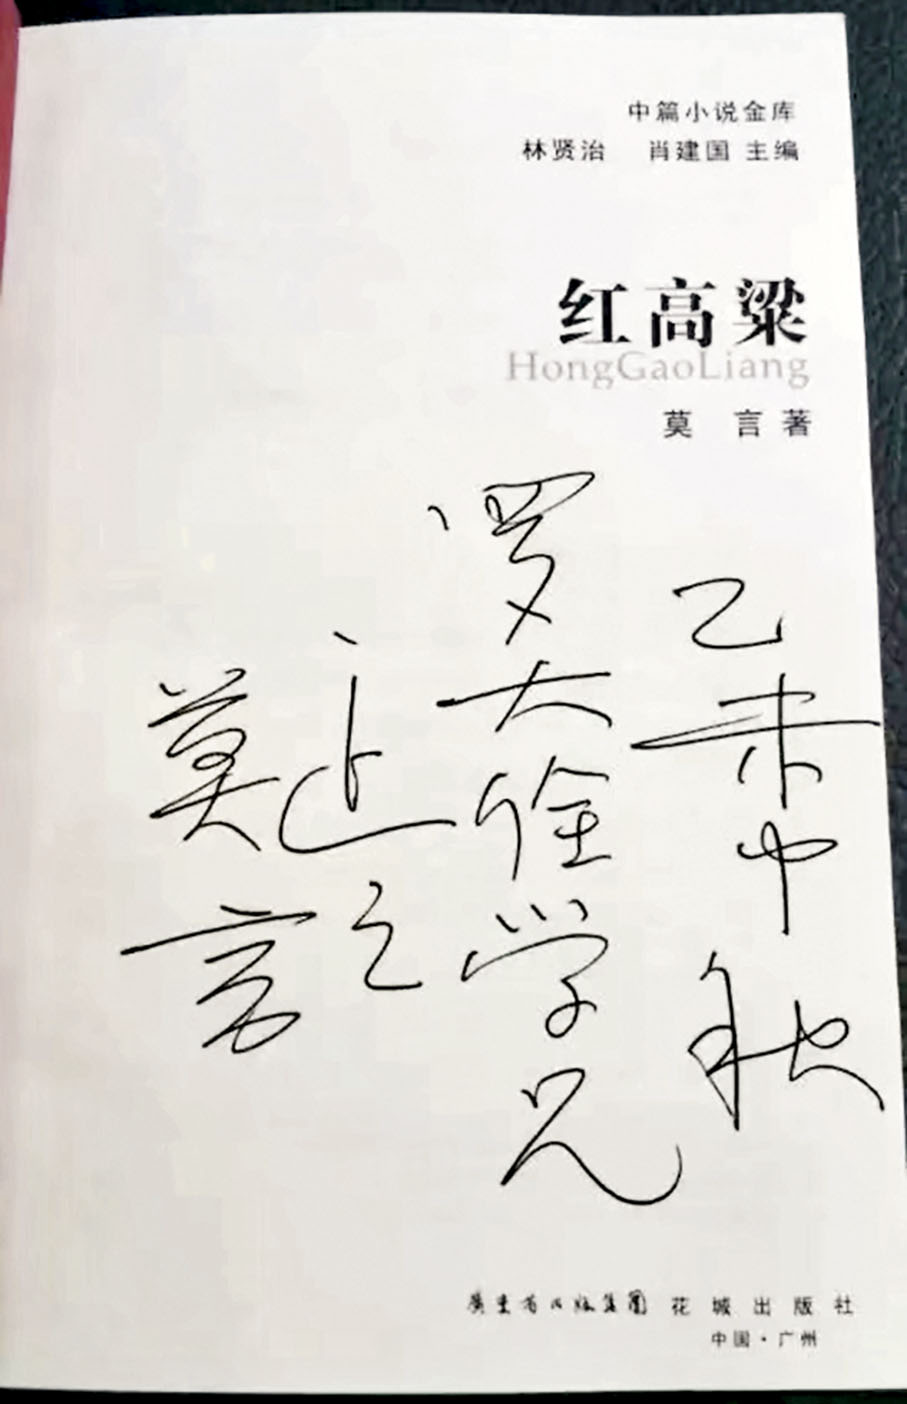 中篇小说金库
林贤治 肖建国 主编
红高粱
HongGaoLiang
莫 言 著
乙未中秋
罗大佺学兄
正之
莫言
广东省出版集团 花城出版社
中国·广州